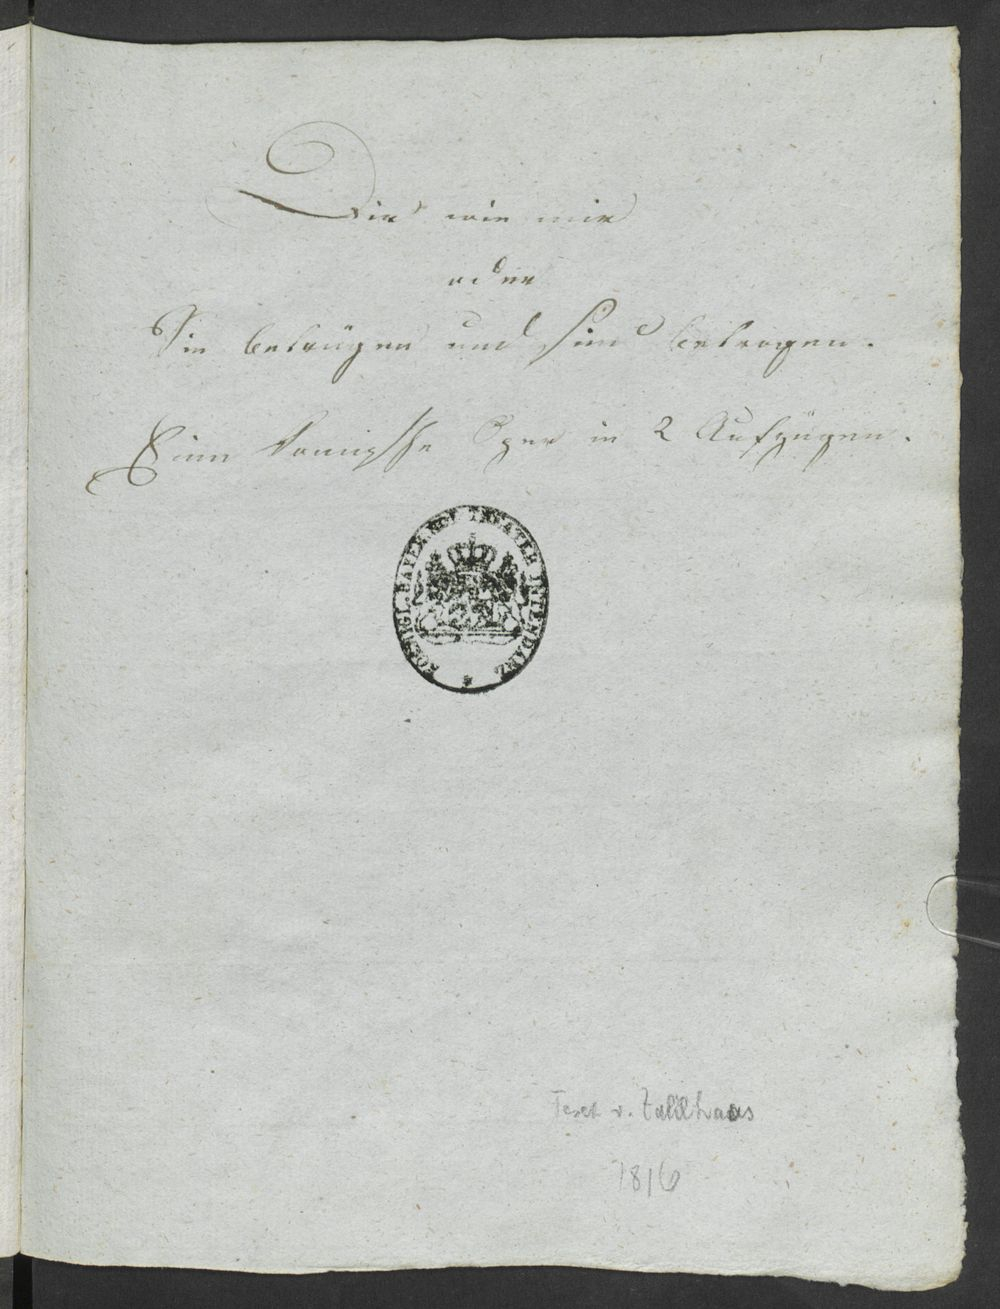 Dir wie mir
oder
Sie betrügen und sind betrogen.
Eine komische Oper in 2 Aufzügen.
KOENIGL. BAYER. HOF THEATER INTENDANZ
Text v. Zahlhaas
1816